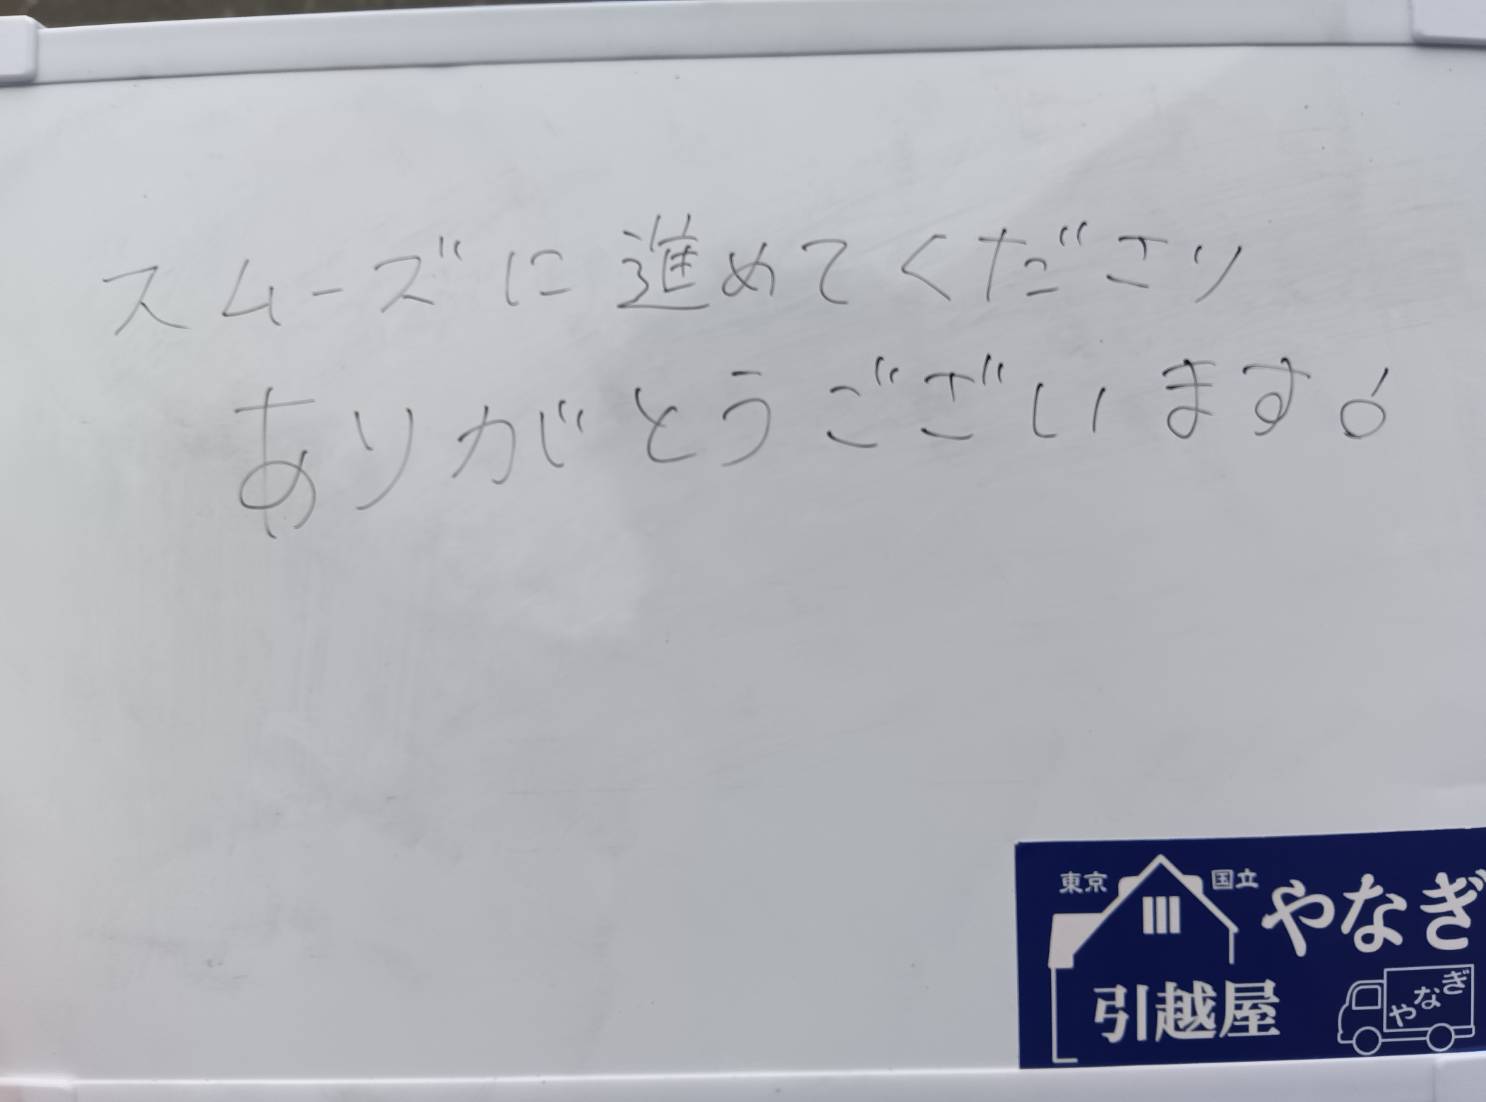 スムーズに進めてくださり
ありがとうございます!
東京 国立 やなぎ
引越屋
やなぎ